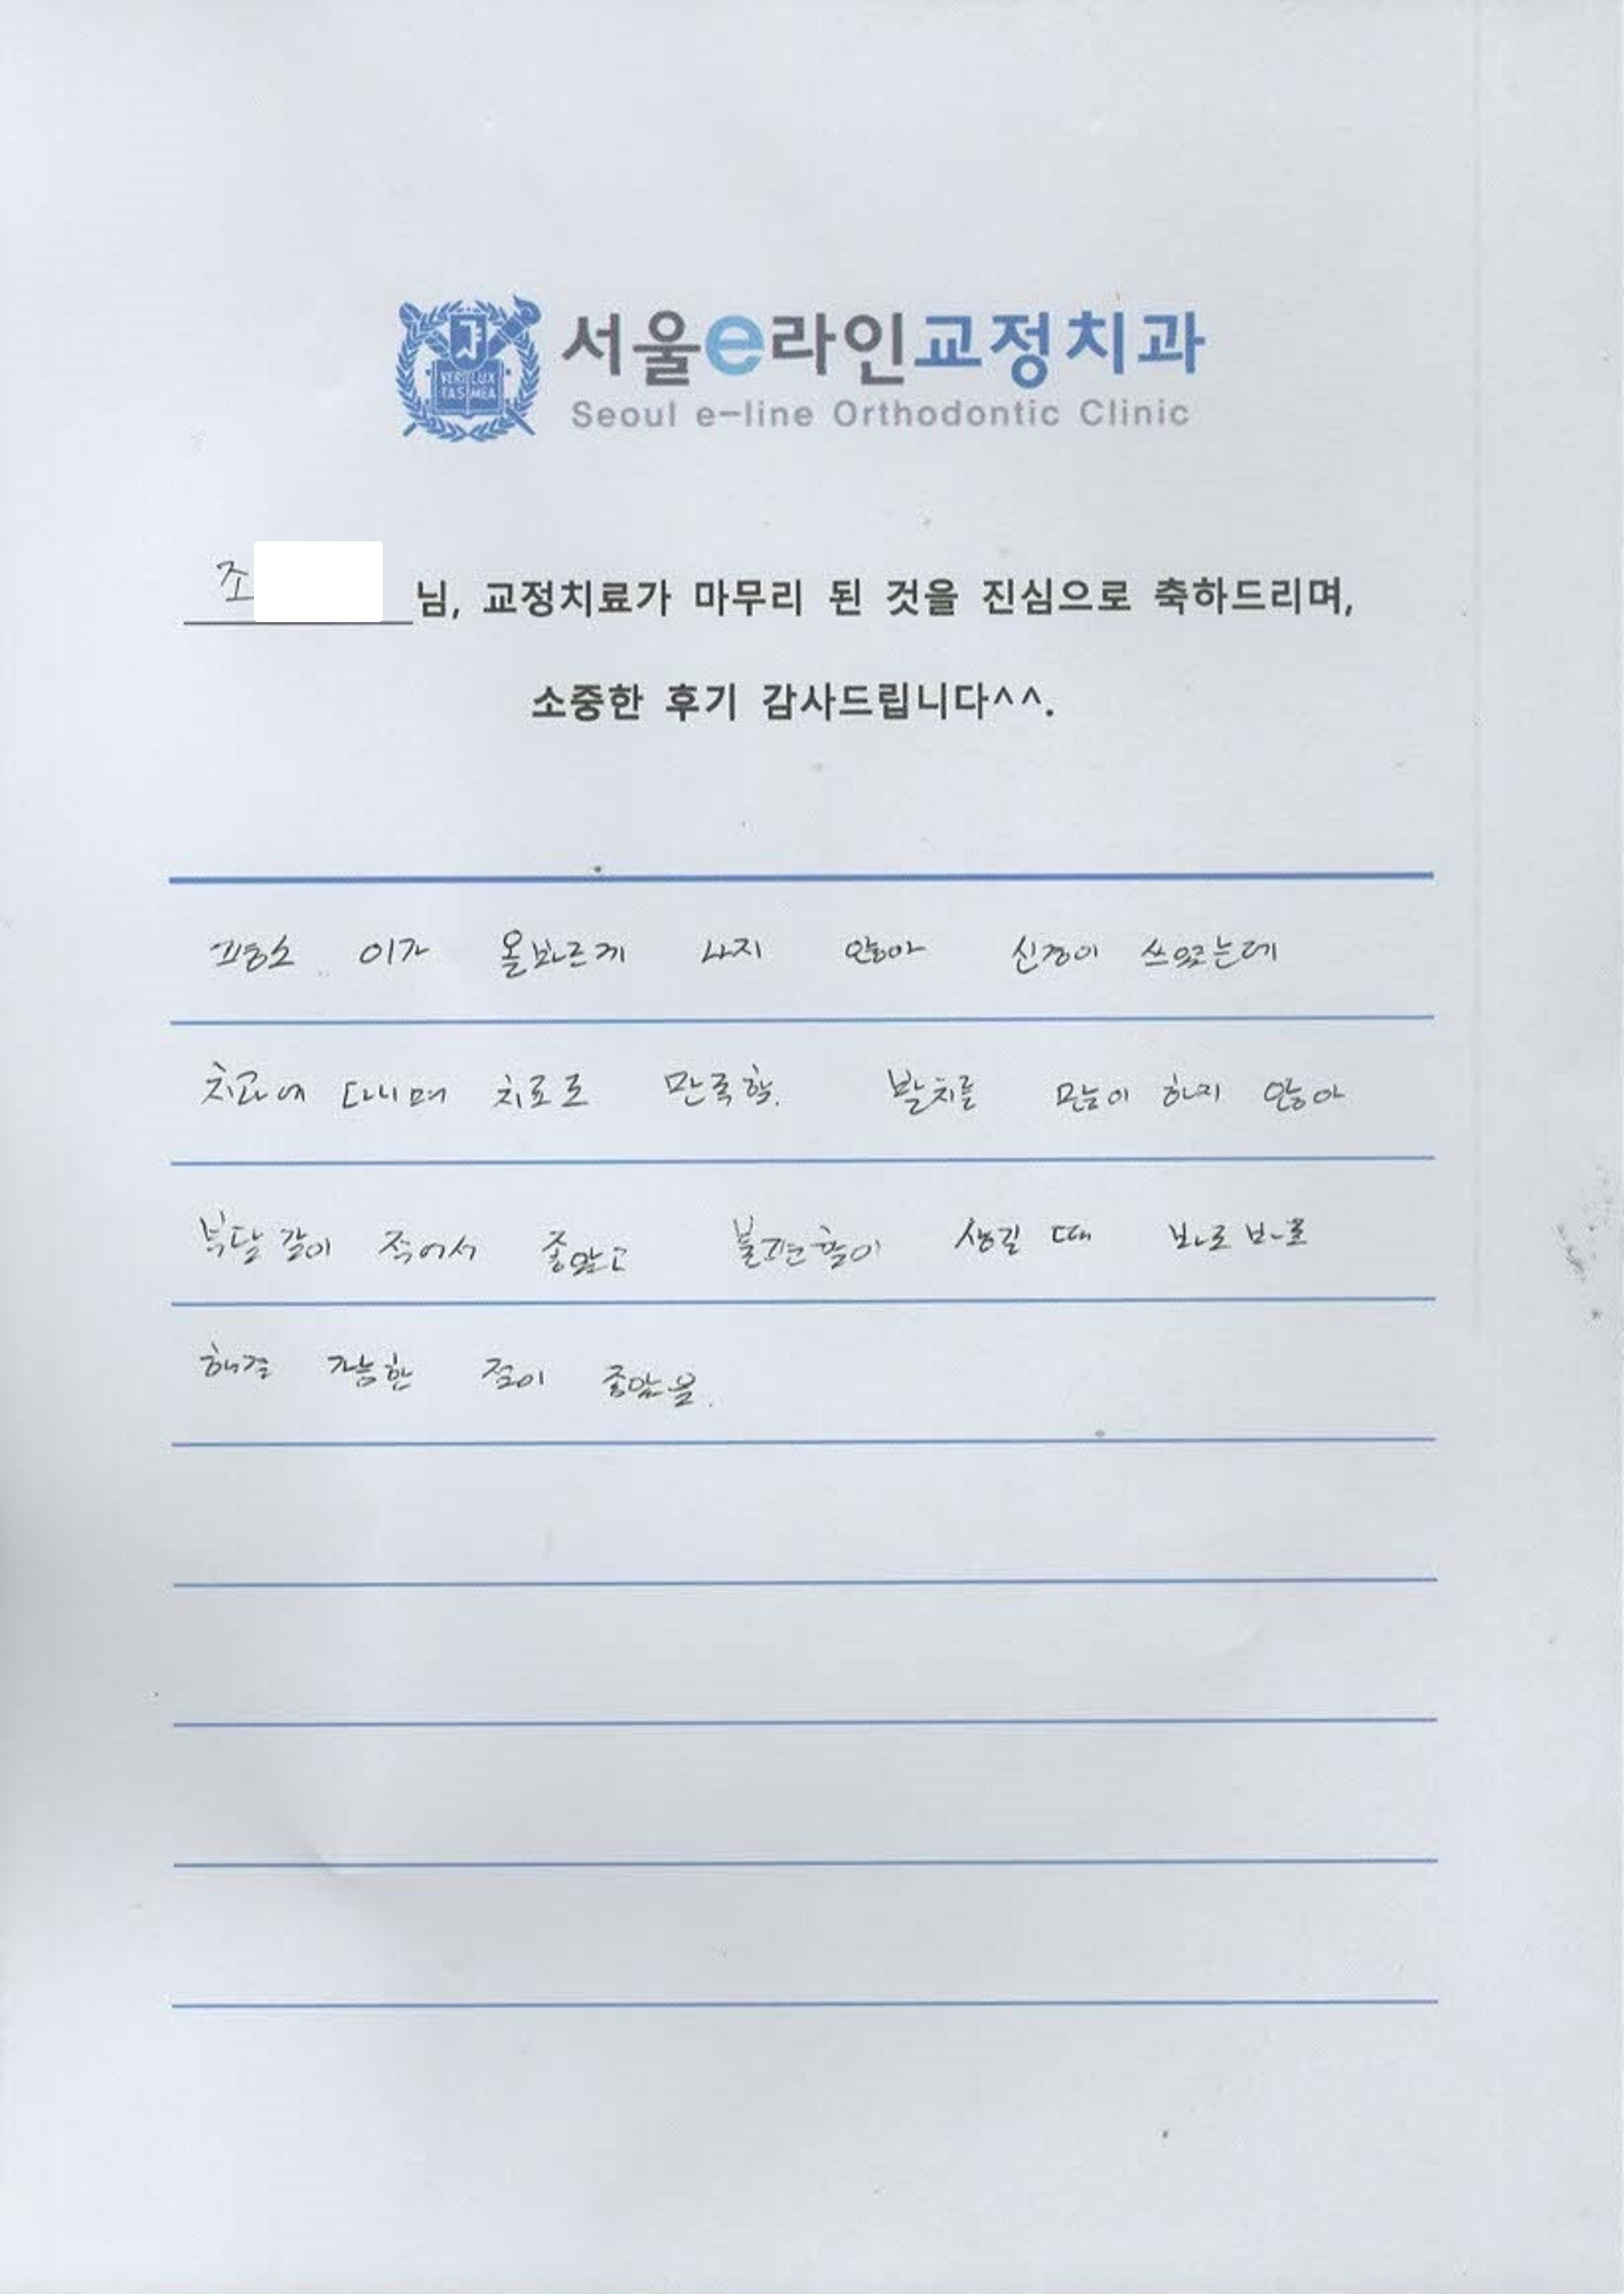 서울e라인교정치과
Seoul e-line Orthodontic Clinic
VERI LUX
TAS MEA
조 님, 교정치료가 마무리 된 것을 진심으로 축하드리며,
소중한 후기 감사드립니다^^.
평소 이가 올바르게 나지 않아 신경이 쓰였는데
치과에 다니며 치료로 만족함. 발치를 많이 하지 않아
부담감이 적어서 좋았고 불편함이 생길 때 바로바로
해결 가능한 점이 좋았음.